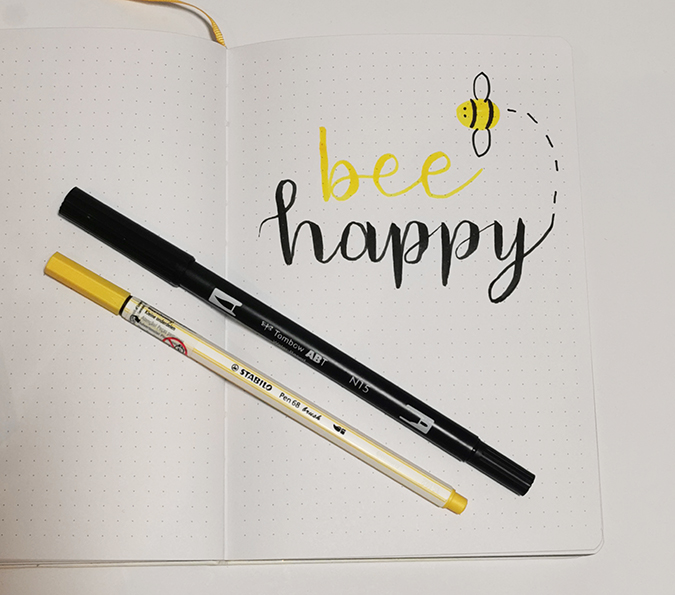 bee
happy
Tombow ABT N15
STABILO Pen 68 brush